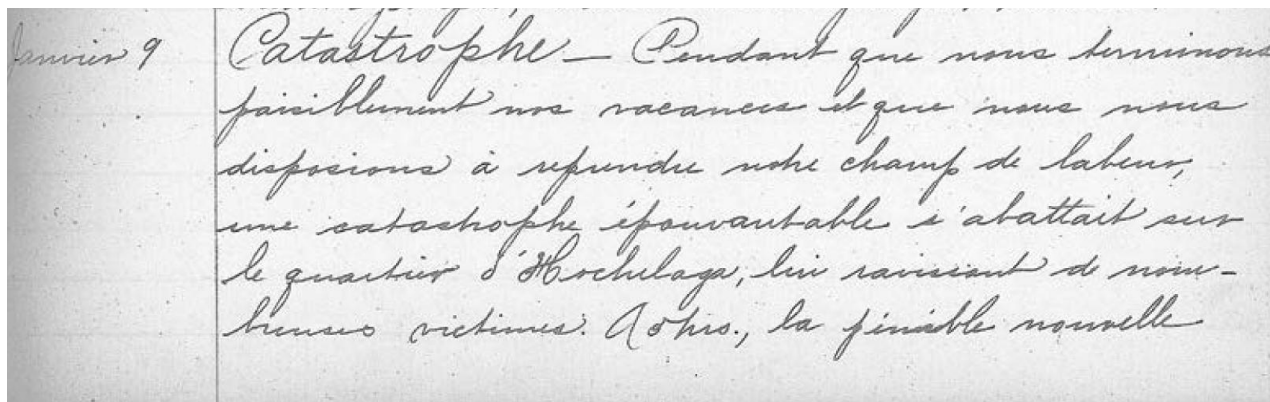 Janvier 9
Catastrophe — Pendant que nous terminons
paisiblement nos vacances et que nous nous
disposions à reprendre notre champ de labeur,
une catastrophe épouvantable s'abattait sur
le quartier d'Hochelaga, lui ravissant de nom-
breuses victimes. A 5 hrs., la pénible nouvelle